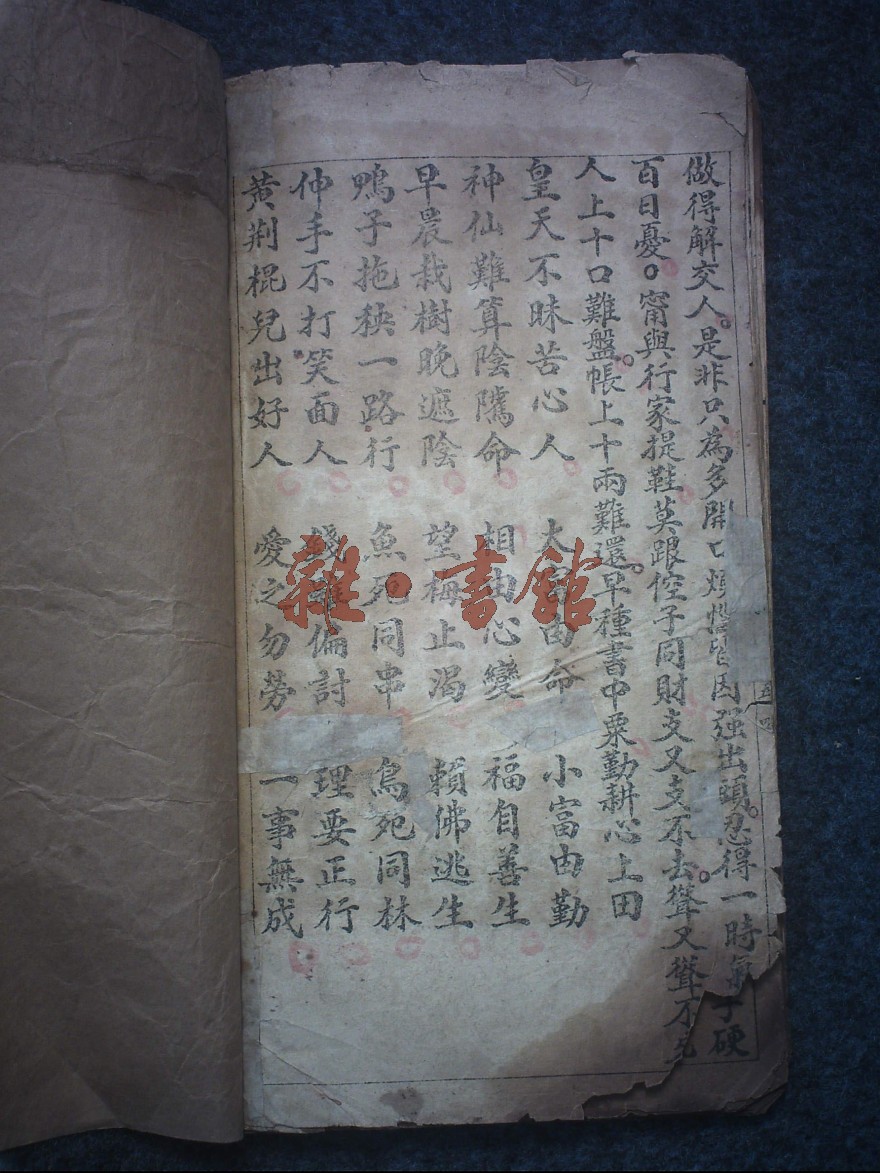 做得解交人。是非只為多開口煩惱皆因强出頭。忍得一時氣子硬
百日憂。甯與行家提鞋。莫跟倥子同財支又支不去。聳又聳不
人上十口難盤。帳上十兩難還。早種書中粟勤耕心上田
皇天不昧苦心人。 大富由命 小富由勤
神仙難算陰隲命 相由心變 福自善生
早晨栽樹晚遮陰 望梅止渴 賴佛逃生
鴨子拖秧一路行 魚死同串 鳥死同林
伸手不打笑面人 偏討 理要正行
黄荆棍兒出好人 愛之勿勞 一事無成
雜·書館